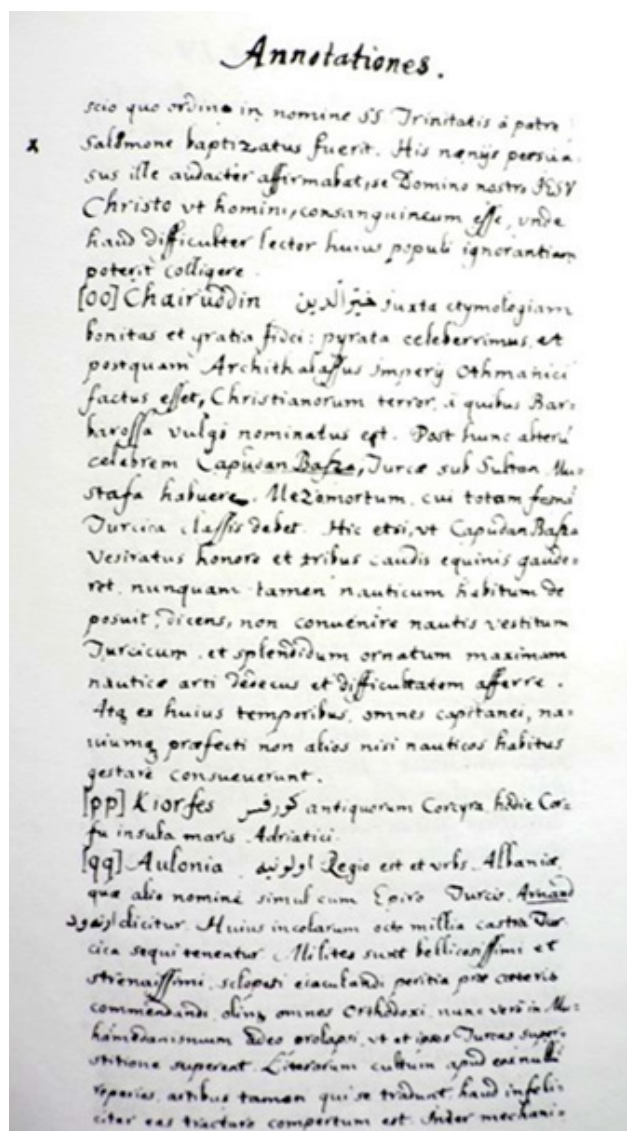 Annotationes.
scio quo ordine in nomine SS. Trinitatis à patre
x Salomone baptizatus fuerit. His nænijs persua-
sus ille audacter affirmabat, se Domino nostro JESV
Christo vt homini, consanguineum esse, vnde
haud difficulter lector huius populi ignorantiam
poterit colligere.
[oo] Chairuddin خير الدين juxta etymologiam
bonitas et gratia fidei: pyrata celeberrimus, et
postquam Archithalassus Imperij Othmanici
factus esset, Christianorum terror, à quibus Bar-
barossa vulgò nominatus est. Post hunc alterū
celebrem Capudan Basza, Turcæ sub Sultan Mu-
stafa habuere, Mezemortum, cui totam
Turcica classis debet. Hic etsi, vt Capudan Basza
Vesiratus honore et tribus caudis equinis gaude-
ret, nunquam tamen nauticum habitum de
posuit, dicens, non convenire nautis vestitum
Turcicum, et splendidum ornatum maximam
nauticæ arti dedecus et difficultatem afferre.
Atq ex huius temporibus, omnes capitanei, na-
viumq præfecti non alios nisi nauticos habitus
gestare consueuerunt.
[pp] Kiorfes كورفس antiquorum Corcyra, hodie Cor-
fu insula maris Adriatici.
[qq] Aulonia اولونيه Regio est et vrbs Albaniæ,
quæ alio nomine simul cum Epiro Turcis Arnaud
ارناود dicitur. Huius incolarum octo millia castra Tur-
cica sequi tenentur. Milites sunt bellicosissimi et
strenuissimi, sclopeti eiaculandi peritia præ cæteris
commendandi, olim omnes Orthodoxi, nunc verò in Mu-
hamedanismum adeo prolapsi, vt et ipsos Turcas super-
stitione superent. Literarum cultum apud eos nullū
reperies, artibus tamen qui se tradunt, haud infeli-
citer eas tractare compertum est. Inter mechani-